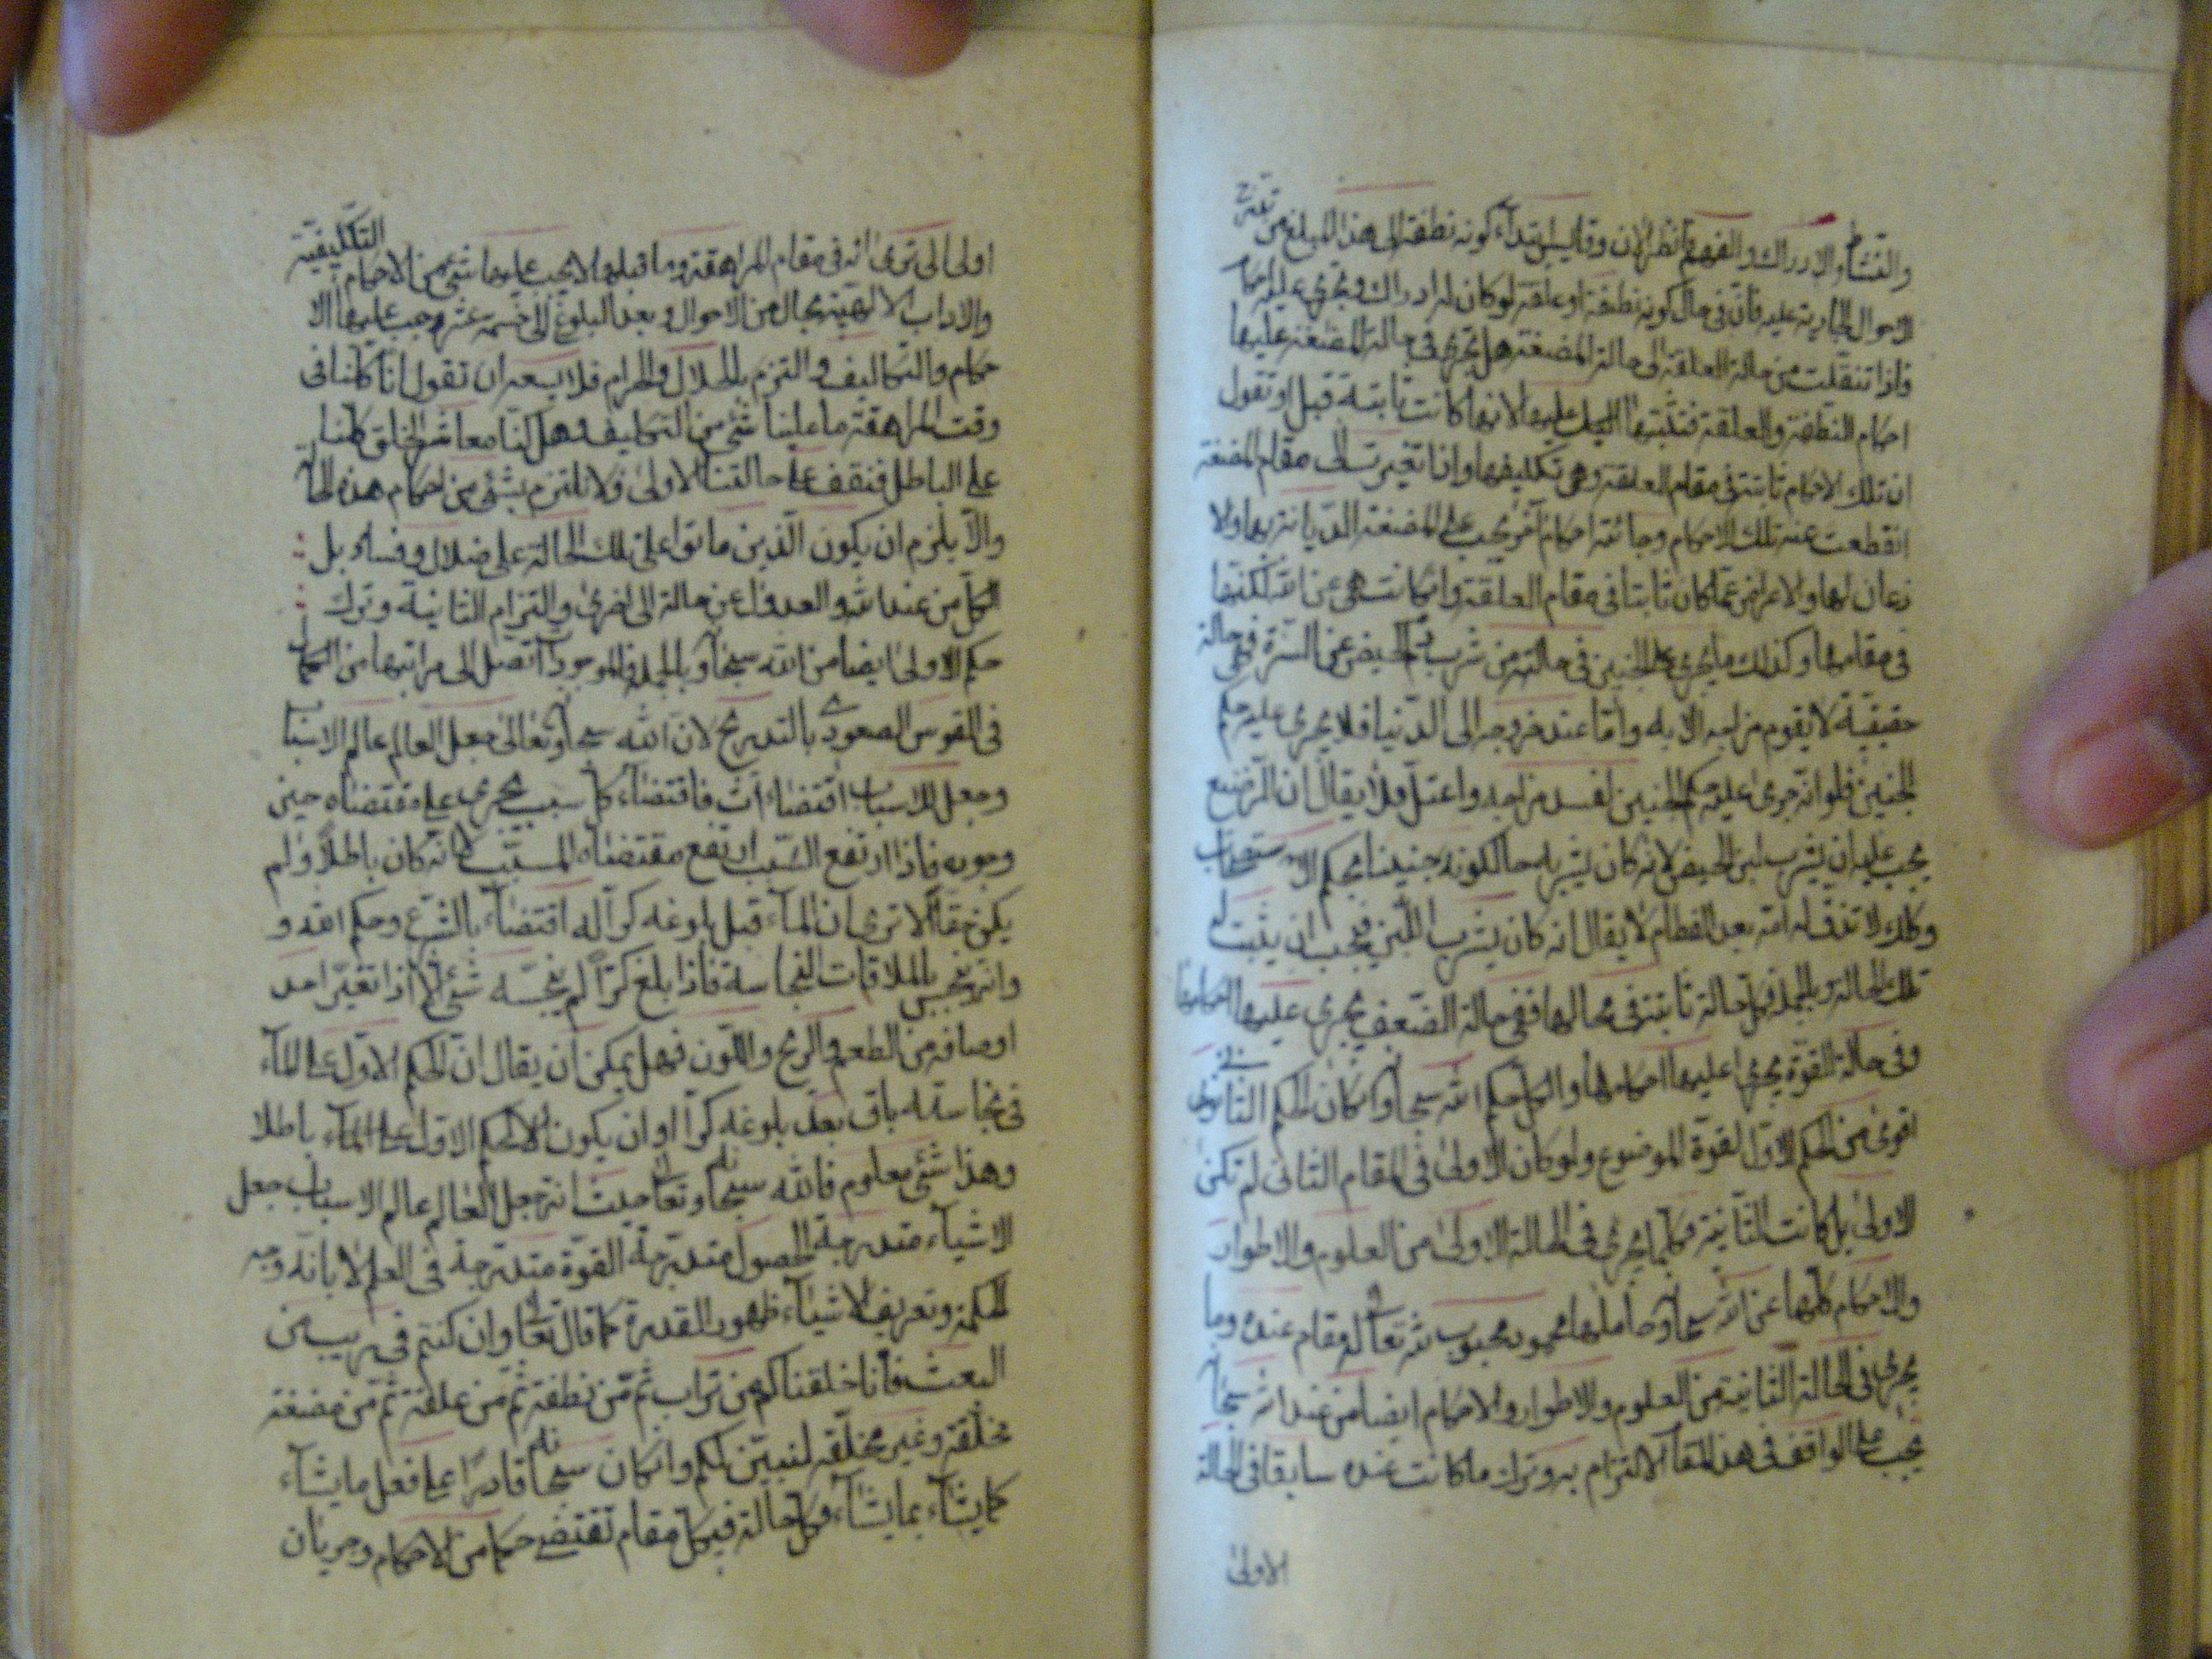 والنشاط والادراك والفهم فانظر الان وقايس ابتداء كونه نطفة الى هذا المبلغ من تدرج
الاحوال الجارية عليه فان فى حال كونه نطفة او علقة لو كان له ادراك ويجرى عليه احكام
واذا تنقلت من حالة العلقة الى حالة المضغة هل يجرى فى حالة المضغة عليها
احكام النطفة والعلقة فتثبتها عليها لانها كانت ثابتة قبل او تقول
ان تلك الاحكام ثابتة فى مقام العلقة وهى تكليفها واذا تغيرت الى مقام المضغة
انقطعت عنه تلك الاحكام وجائته احكام اخر يجب على المضغة الديانة بها والا
ذعان لها والاعراض عما كان ثابتا فى مقام العلقة وان كانت هى عن الله لكنها
فى مقامها وكذلك ما يجرى على الجنين فى حالته من شرب الحيض عن السرة فهى حالة
حقيقية لا يقوم مزاجه الا به واما عند خروجه الى الدنيا فلا يجرى عليه حكم
الجنين فلو انه جرى عليه حكم الجنين لفسد مزاجه واعتل ولا يقال ان الرضيع
يجب عليه ان يشرب الحيض لانه كان يشربه حالكونه جنينا بحكم الاستصحاب
وكذلك لا تذقه امه بعد الفطام لا يقال انه كان يشرب اللبن فيجب ان يثبت له
تلك الحالة وبالجملة فكل حالة ثابتة فى محالها ففى حالة الضعف يجرى عليها احكامها
وفى حالة القوة يجرى عليها احكامها والكل حكم الله سبحانه وان كان الحكم الثانوى
اقوى من الحكم الاول لقوة الموضوع ولو كان الاولى فى المقام الثانى لم تكن
الاولى بل كانت الثانية فكلما يجرى فى الحالة الاولى من العلوم والاطوار
والاحكام كلها عن الله سبحانه وحاملها محبوب لله تعالى له مقام عنده وما
يجرى فى الحالة الثانية من العلوم والاطوار والاحكام ايضا من عند الله سبحانه
يجب على الواقف فى هذا المقام الالتزام به وترك ما كانت عنده سابقا فى الحالة
الاولى
اولى الى ترى انه فى مقام المراهقة وما قبلها لا يجب عليها شىء من الاحكام التكليفية
والاداب الالهية بحال من الاحوال وبعد البلوغ الى خمسة عشر وجب عليها الا
حكام والتكاليف والتزم بالحلال والحرام فلا يسعه ان تقول انا كلنا فى
وقت المراهقة ما علينا شىء من التكليف وهل كنا معاشر الخلق كلنا
على الباطل فنقف على حالتنا الاولى ولا نلتزم بشىء من احكام هذه الحالة
والا يلزم ان يكون الذين ماتوا على تلك الحالة على ضلال وفساد بل
الكل من عند الله والعدول عن حالة الى اخرى والتزام الثانية وترك
حكم الاولى ايضا من الله سبحانه وبالجملة الموجودات تصل الى مراتبها من الكمال
فى القوس الصعودى بالتدريج لان الله سبحانه وتعالى جعل العالم عالم الاسباب
وجعل للاسباب اقتضاءات فاقتضاء كل سبب يجرى على مقتضاه حين
وجوده فاذا ارتفع السبب ارتفع مقتضاه المسبب لا انه كان باطلا ولم
يكن حقا الا ترى ان الماء قبل بلوغه كرا له اقتضاء بالشرع وحكم الله و
وانه ينجس بالملاقات النجاسة فاذا بلغ كرا لم ينجسه شىء الا اذا تغير احد
اوصافه من الطعم والريح واللون فهل يمكن ان يقال ان الحكم الاول على الماء
فى نجاسته باق بعد بلوغه كرا او ان يكون الحكم الاول على الماء باطلا
وهذا شىء معلوم فالله سبحانه وتعالى حيث انه جعل العالم عالم الاسباب جعل
الاشياء متدرجة الحصول متدرجة القوة متدرجة فى العلم لابانة وجه
الحكمة وتعريف الاشياء ظهور القدرة كما قال تعالى وان كنتم فى ريب من
البعث فانا خلقناكم من تراب ثم من نطفة ثم من علقة ثم من مضغة
مخلقة وغير مخلقة لنبين لكم وان كان سبحانه قادرا على فعل ما يشاء
كما يشاء بما يشاء فكل حالة فى كل مقام تقتضى حكما من الاحكام وجريان